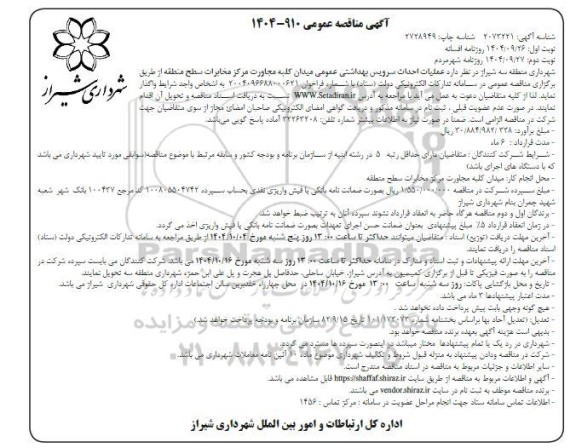 آگهی مناقصه عمومی ۹۱۰-۱۴۰۴
شناسه آگهی: ۲۰۷۳۲۲۱ شناسه چاپ: ۲۷۲۸۹۴۹
نوبت اول: ۱۴۰۴/۰۹/۲۶ روزنامه افسانه
نوبت دوم: ۱۴۰۴/۰۹/۲۷ روزنامه شهرمردم
شهرداری شیراز
شهرداری منطقه سه شیراز در نظر دارد عملیات احداث سرویس بهداشتی عمومی میدان کلبه مجاورت مرکز مخابرات سطح منطقه از طریق
برگزاری مناقصه عمومی در سامانه تدارکات الکترونیکی دولت (ستاد) با شماره فراخوان به اشخاص واجد شرایط واگذار
نماید. لذا از کلیه متقاضیان دعوت به عمل می آید با مراجعه به آدرس WWW.Setadiran.ir نسبت به دریافت اسناد مناقصه و تحویل آن اقدام
نمایند. در صورت عدم عضویت قبلی، ثبت نام در سامانه مذکور و دریافت گواهی امضای الکترونیکی صاحبان امضای مجاز از سوی متقاضیان جهت
شرکت در مناقصه الزامی است. ضمنا در صورت نیاز به اطلاعات بیشتر شماره تلفن: ۳۲۲۶۳۲۰۸ آماده پاسخ گویی می‌باشد.
- مبلغ برآورد: ۳۰/۸۸۴/۹۸۲/۳۳۸ ریال
- مدت قرارداد: ۶ ماه
- شرایط شرکت کنندگان: متقاضیان دارای حداقل رتبه ۵ در رشته ابنیه از سازمان برنامه و بودجه کشور و سابقه مرتبط با موضوع مناقصه(سوابقی مورد تایید شهرداری می باشد
که با دستگاه های اجرای باشد)
- محل انجام کار: میدان کلبه مجاورت مرکز مخابرات سطح منطقه
- مبلغ سپرده شرکت در مناقصه ۱/۵۵۰/۰۰۰/۰۰۰ ریال بصورت ضمانت نامه بانکی یا فیش واریزی نقدی بحساب سپرده ۱۰۰۸۰۵۵۰۴۷۴۲ کد مرجع ۱۰۰۴۳۷ بانک شهر شعبه
شهید چمران بنام شهرداری شیراز
- برندگان اول و دوم مناقصه هرگاه حاضر به انعقاد قرارداد نشوند سپرده آنان به ترتیب ضبط خواهد شد.
- در زمان انعقاد قرارداد ۵٪ مبلغ پیشنهادی بعنوان ضمانت حسن اجرای تعهدات بصورت ضمانت نامه بانکی یا فیش واریزی اخذ می گردد.
- آخرین مهلت دریافت (توزیع) اسناد: متقاضیان میتوانند حداکثر تا ساعت ۱۳:۰۰ روز پنج شنبه مورخ ۱۴۰۴/۱۰/۰۴ از طریق مراجعه به سامانه تدارکات الکترونیکی دولت (ستاد)
اسناد مناقصه را دریافت نمایند.
- آخرین مهلت ارائه پیشنهادات و ثبت اسناد و مدارک در سامانه حداکثر تا ساعت ۱۳:۰۰ روز سه شنبه مورخ ۱۴۰۴/۱۰/۱۶ می باشد. شرکت کنندگان می بایست سپرده شرکت در
مناقصه را به صورت فیزیکی تا قبل از برگزاری کمیسیون به آدرس شیراز، خیابان ساحلی، حدفاصل پل هجرت و پل علی ابن حمزه شهرداری منطقه سه تحویل نمایند.
- تاریخ و محل بازگشایی پاکات: روز سه شنبه ساعت ۱۳:۰۰ مورخ ۱۴۰۴/۱۰/۱۶ در محل چهارراه خلدبرین سالن اجتماعات اداره کل حقوقی شهرداری شیراز می باشد.
- مدت اعتبار پیشنهادها ۳ ماه می باشد.
- هیچ گونه وجهی بابت پیش پرداخت داده نخواهد شد.
- تعدیل: (تعدیل آحاد بها براساس بخشنامه شماره تاریخ ۸۲/۹/۱۵ سازمان برنامه و بودجه پرداخت خواهد شد.)
- بدیهی است هزینه آگهی بعهده برنده مناقصه خواهد بود.
- شهرداری در رد یک یا تمام پیشنهادها مختار میباشد در اینصورت سپرده ها مسترد می گردد.
- شرکت در مناقصه ودادن پیشنهاد به منزله قبول شروط و تکالیف شهرداری موضوع ماده ۱۰ آئین نامه معاملات شهرداری می باشد.
- سایر اطلاعات و جزئیات مربوط به مناقصه در اسناد مناقصه مندرج است.
- آگهی و اطلاعات مربوط به مناقصه از طریق سایت https://shaffaf.shiraz.ir قابل مشاهده می باشد.
- برنده مناقصه موظف به ثبت نام در سایت vendor.shiraz.ir می باشد.
- اطلاعات تماس سامانه ستاد جهت انجام مراحل عضویت در سامانه: مرکز تماس: ۱۴۵۶
اداره کل ارتباطات و امور بین الملل شهرداری شیراز